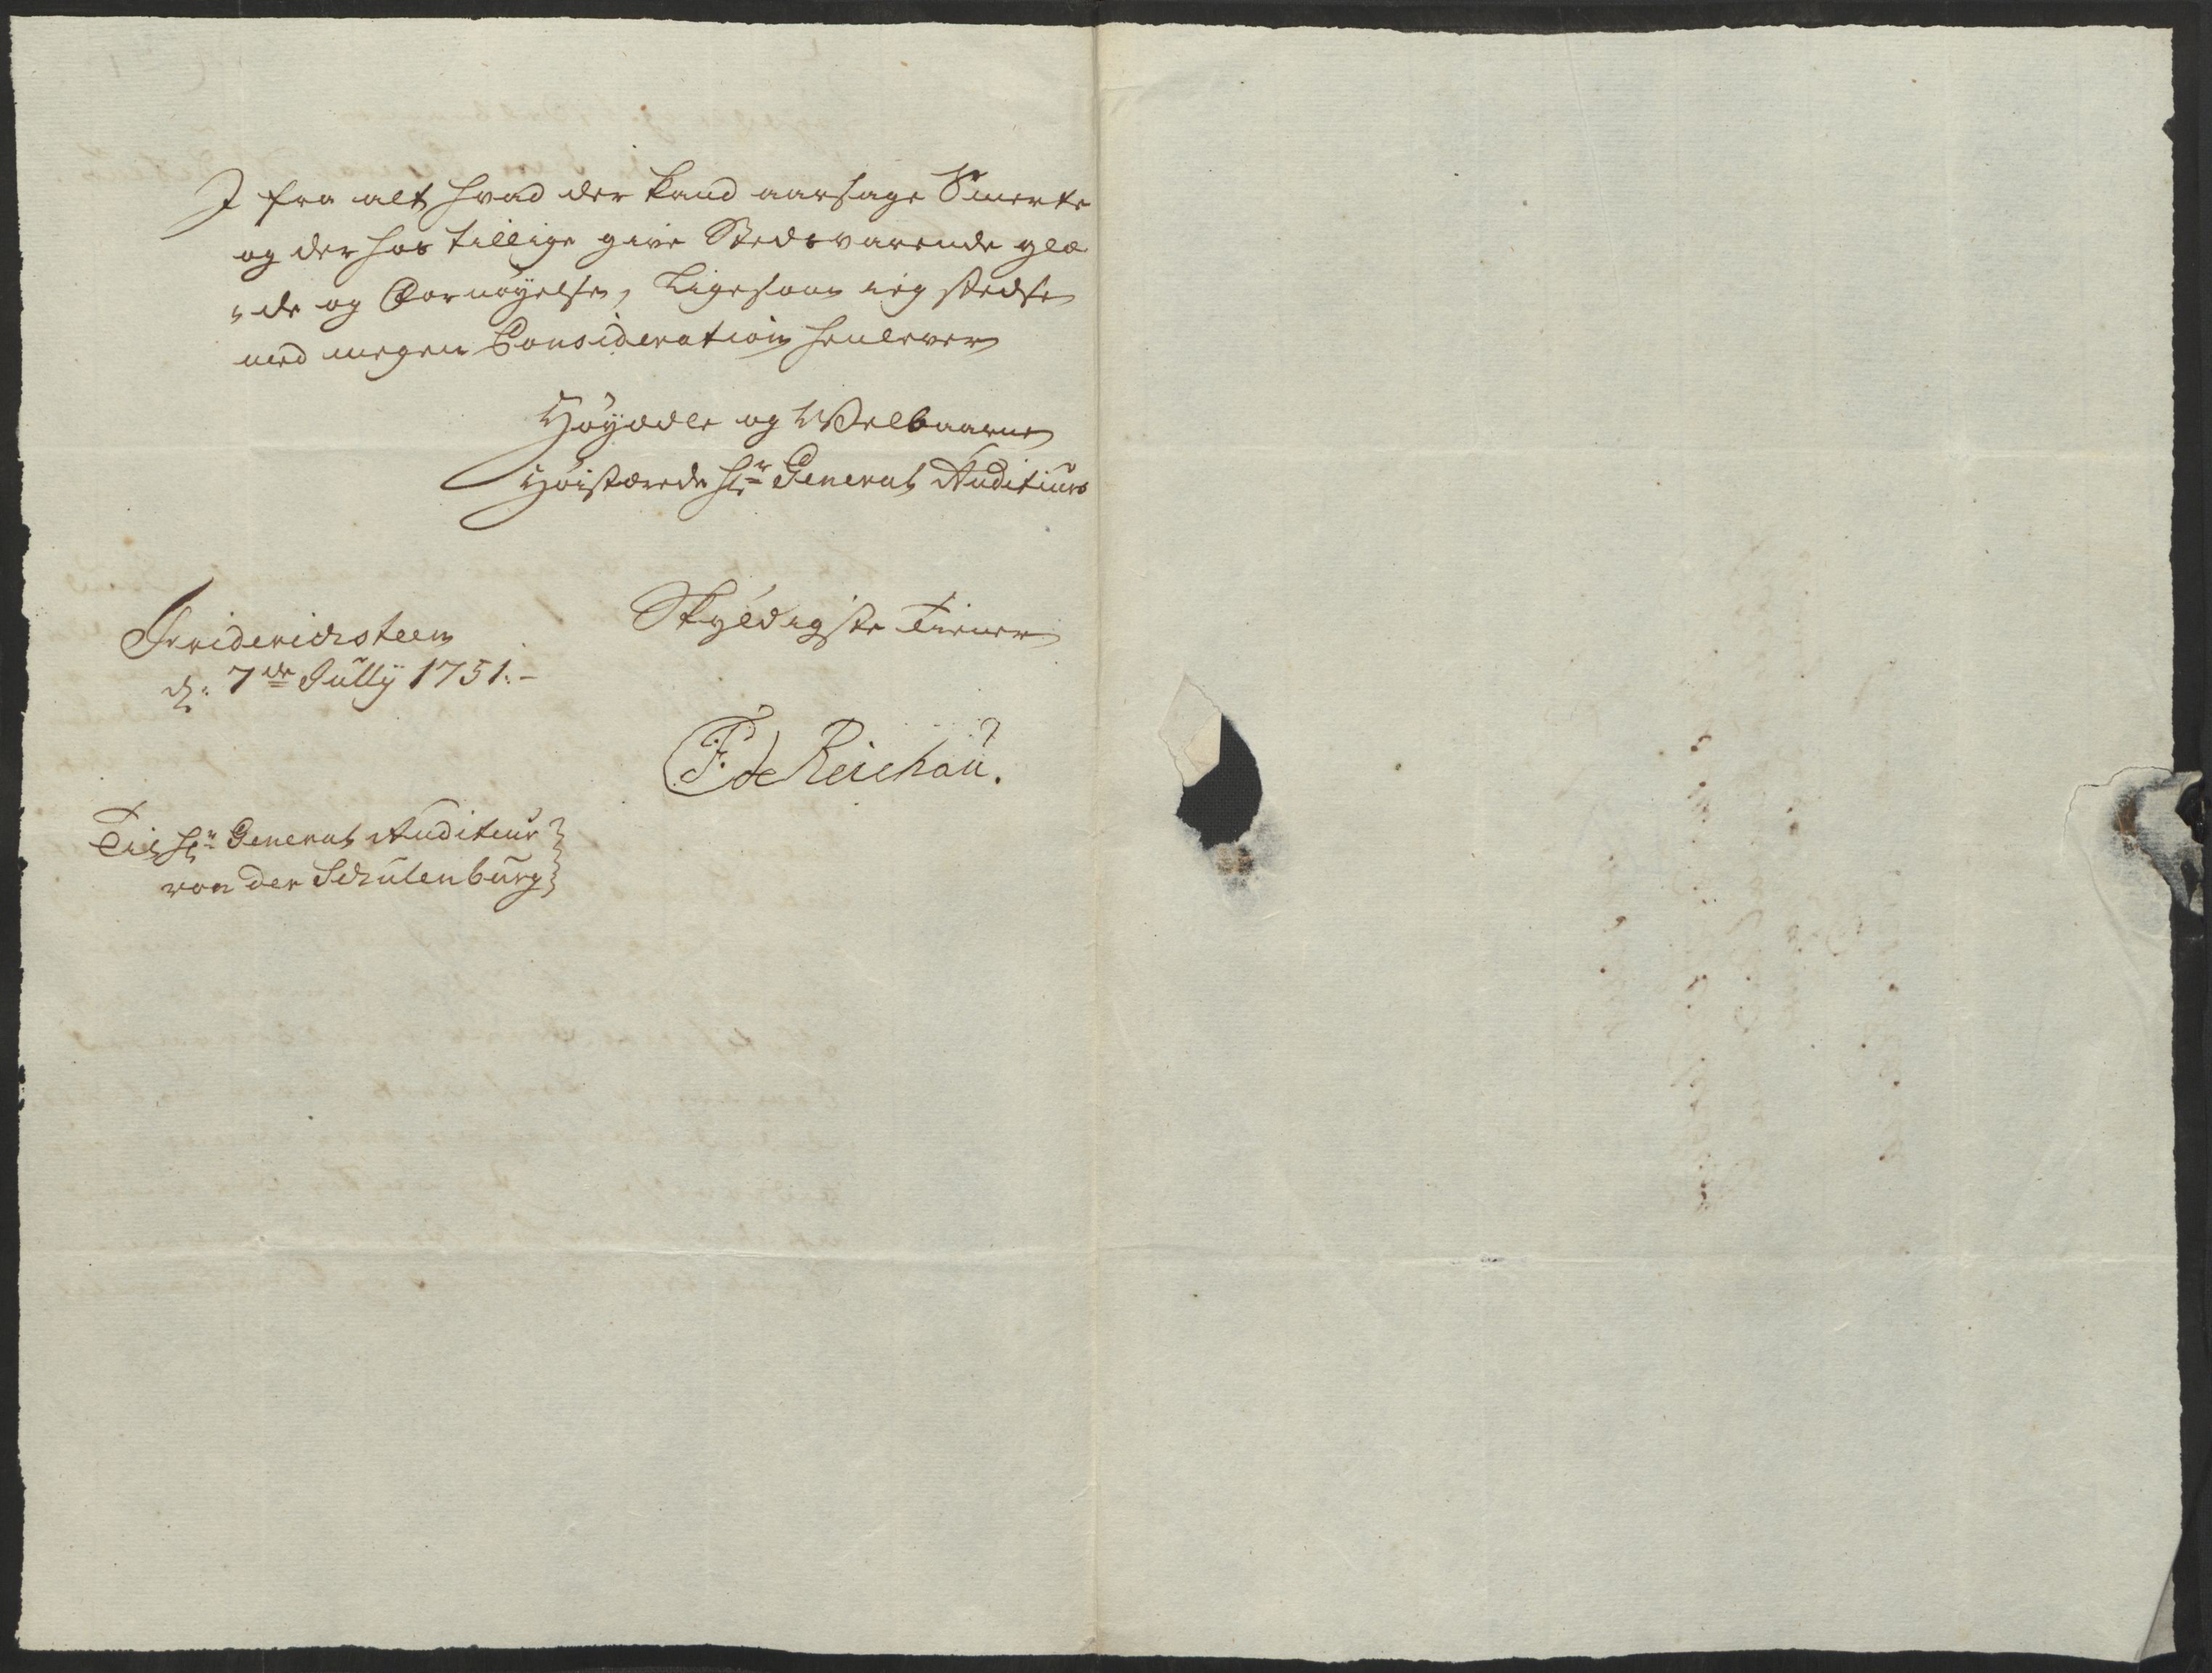 I fra alt hvad der kand aarsage Smerte
og der hos tillige give Stedsvarende glæ
„de og Fornøyelse, Ligesom ieg stedse
med megen Consideration henlever
Høyædle og Welbaarne
Høistærede Hr General Auditeurs
Skyldigste Tiener
Friderichsteen
d: 7de Jully 1751.-
F. de Reichau.
Til Hr General Auditeur
von der Schulenburg